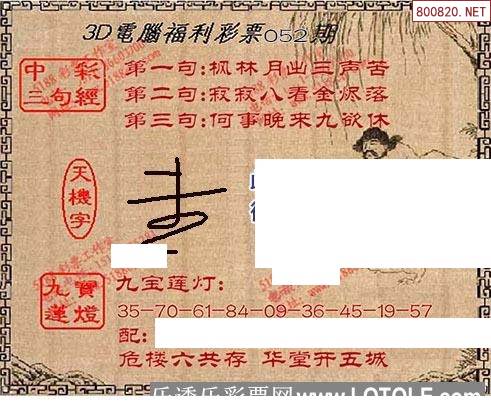 800820.NET
3D電腦福利彩票052期
中彩三句經
第一句:枫林月出三声苦
第二句:寂寂八看金烬落
第三句:何事晚来九欲休
天機字
九寶蓮燈
九宝莲灯:
35-70-61-84-09-36-45-19-57
配:
危楼六共存 华堂开五城
乐透乐彩票网www.LOTOLE.com